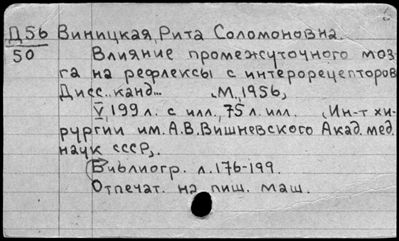 Д56 Виницкая, Рита Соломоновна.
50 Влияние промежуточного моз-
га на рефлексы с интерорецепторов
Дисс.. канд... М., 1956,
V, 199 л. с илл., 75 л. илл. (Ин-т хи-
рургии им. А.В. Вишневского Акад. мед.
наук СССР).
Библиогр. л. 176-199.
Отпечат. на пиш. маш.